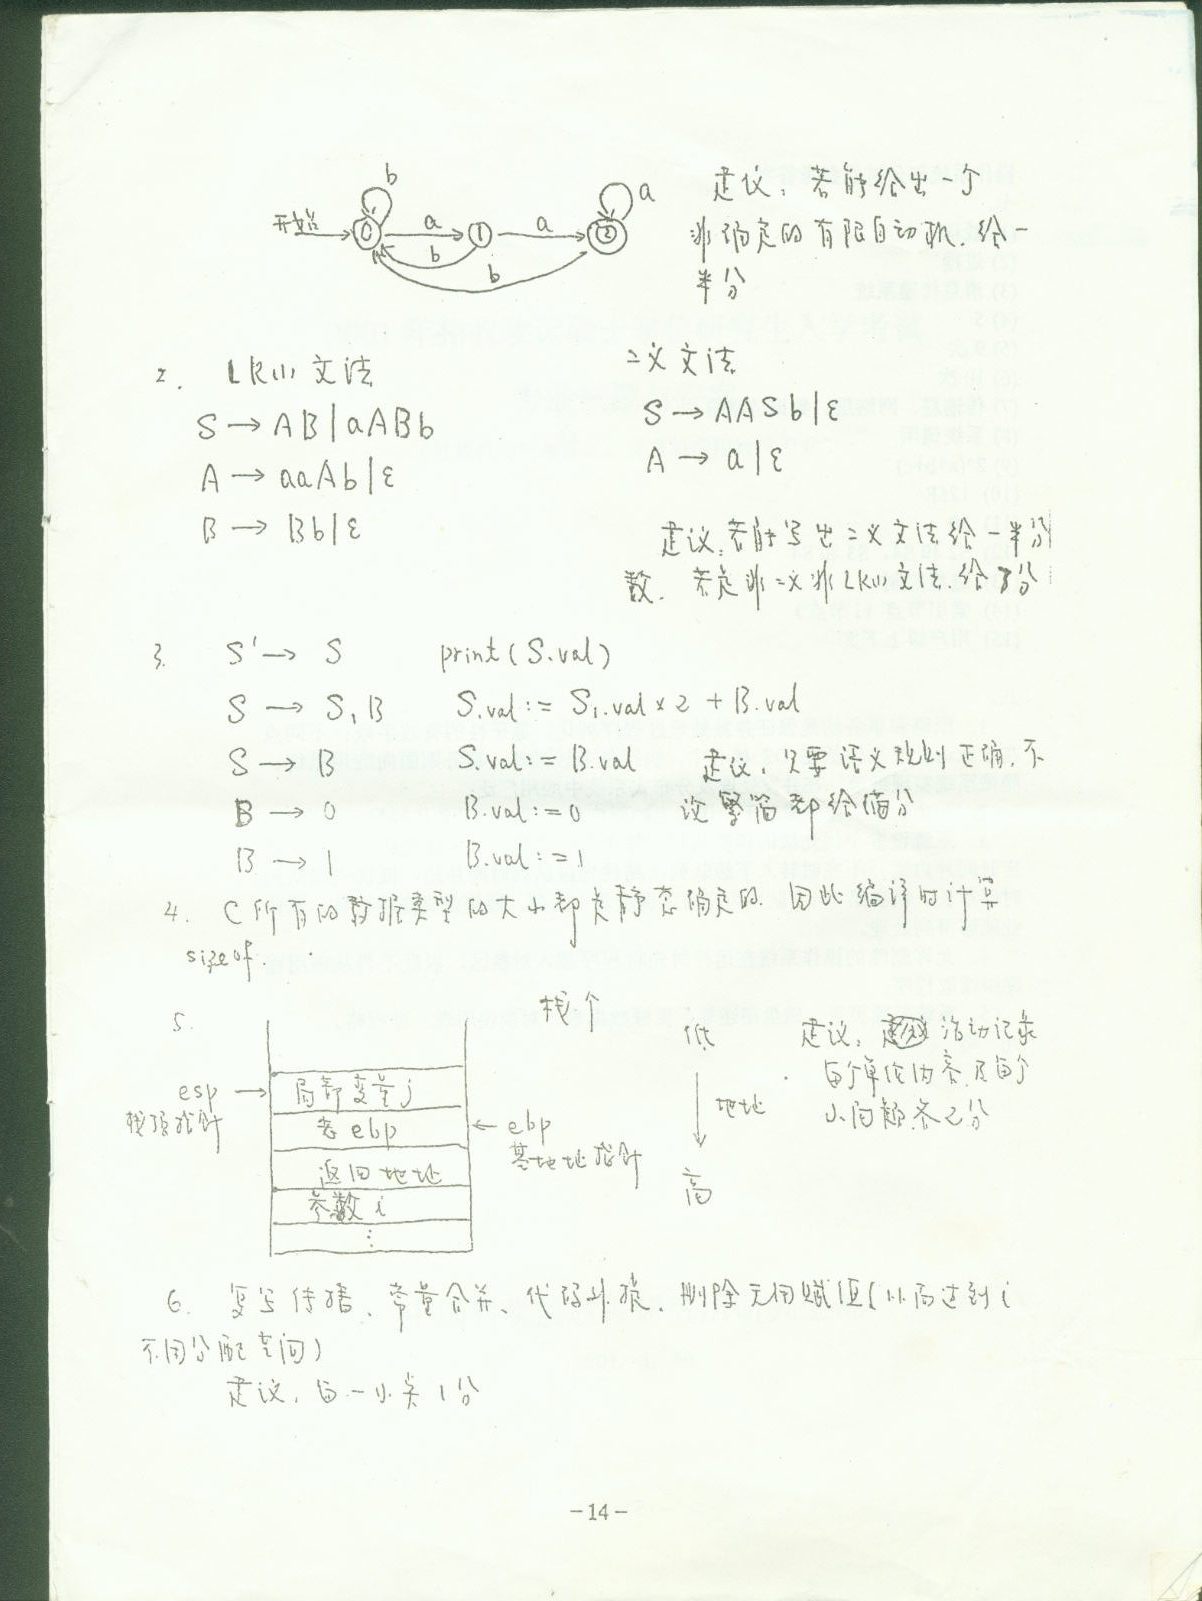 b
a
开始
0
a
1
a
2
b
b
建议：若能给出一个
非确定的有限自动机，给一
半分
2. LR(1)文法
S → AB | aABb
A → aaAb | ε
B → Bb | ε
二义文法
S → AASb | ε
A → a | ε
建议：若能写出二义文法给一半分
数，若是非二义非LR(1)文法，给3分
3. S' → S print(S.val)
S → S₁B S.val := S₁.val × 2 + B.val
S → B S.val := B.val
B → 0 B.val := 0
B → 1 B.val := 1
建议，只要语义规则正确，不
论繁简都给满分
4. C所有的数据类型的大小都是静态确定的，因此编译时计算
sizeof.
5. 栈个
esp
栈顶指针
局部变量j
老ebp
返回地址
参数i
⋮
ebp
基地址指针
低
地址
高
建议： 活动记录
每个单位内容及每个
小问题各2分
6. 复写传播、常量合并、代码外提、删除无用赋值(从而达到i
不用分配空间)
建议，每一小点1分
-14-